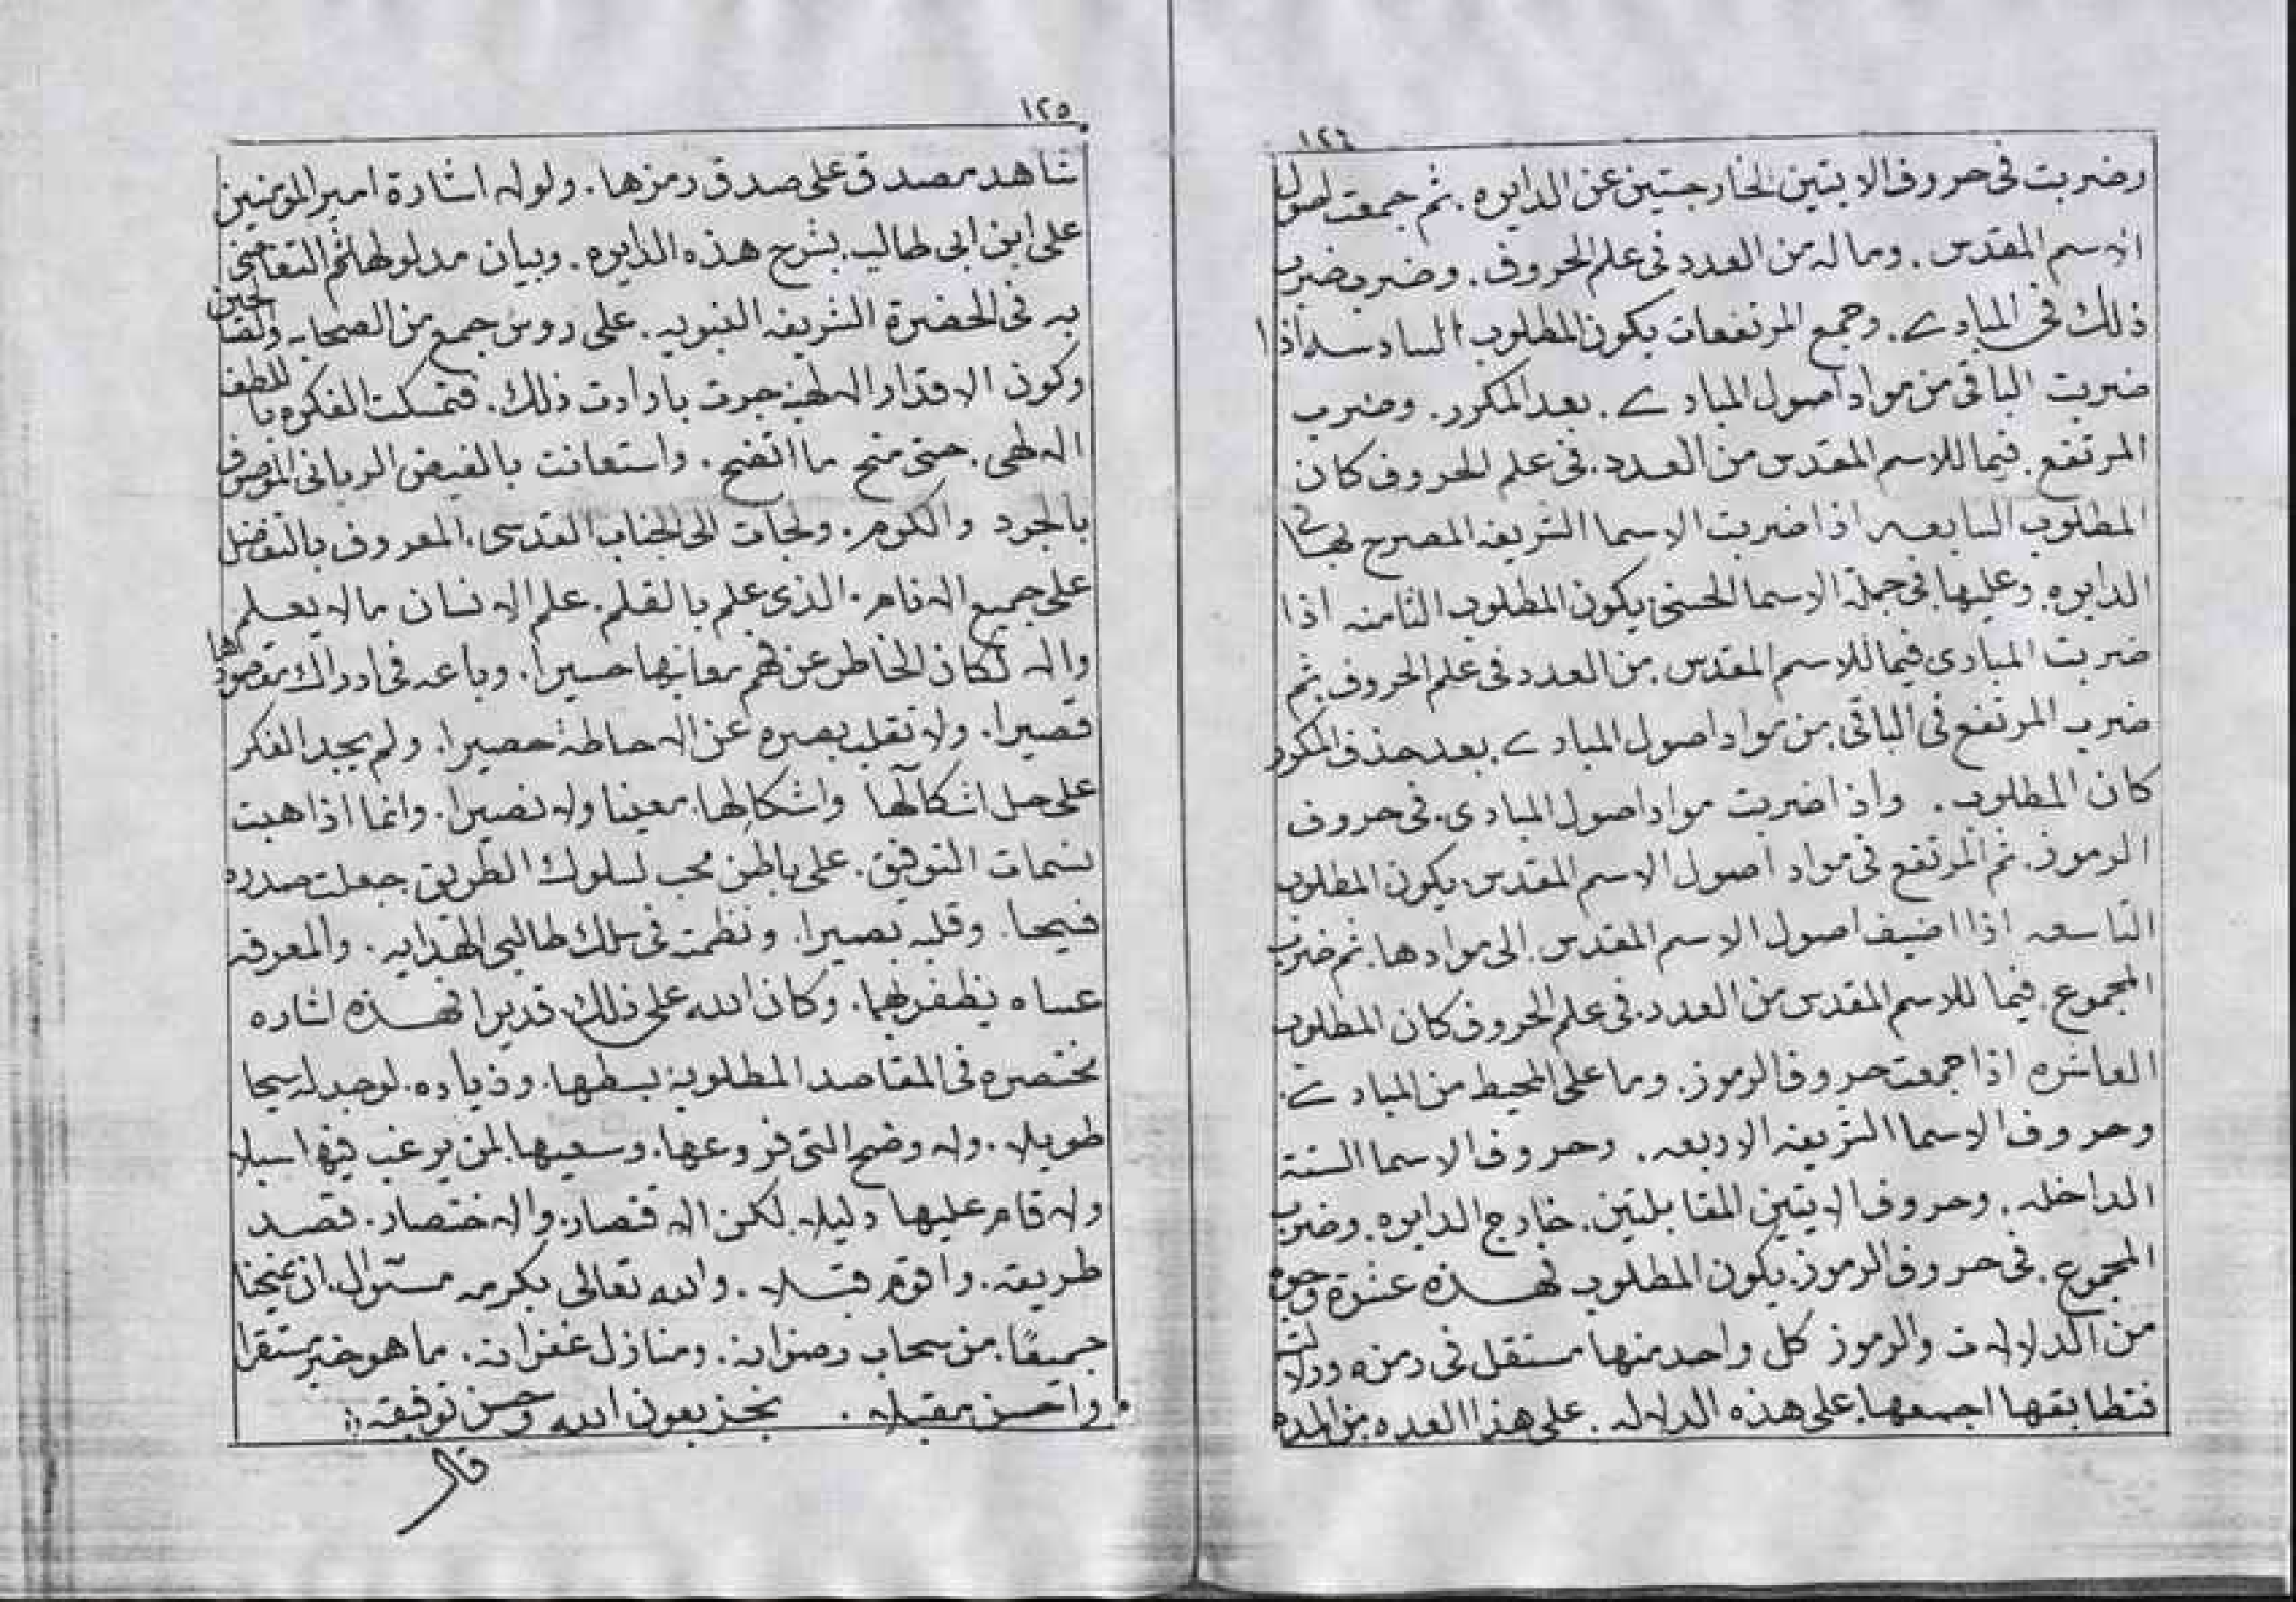 ١٢٤
وضربت فى حروف الايتين الخارجتين عن الدايره . ثم جمعت اصول
الاسم المقدس . وماله من العدد فى علم الحروف . وضرب ضرب
ذلك فى المبادى . وجمع المرتفعات يكون المطلوب السادسه اذا
ضربت الباقى من مواد اصول المبادى . بعد المكرر . وضرب
المرتفع . فيما للاسم المقدس من العدد . فى علم الحروف كان
المطلوب السابعه اذا ضربت الاسما الشريفه المصرح بها فى
الدايره . وعليها فى جملة الاسما الحسنى يكون المطلوب الثامنه اذا
ضربت المبادى فيما للاسم المقدس . من العدد فى علم الحروف ثم
ضرب المرتفع فى الباقى . من مواد اصول المبادى . بعد حذف المكرر
كان المطلوب . واذا ضربت مواد اصول المبادى . فى حروف
الرموز . ثم المرتفع فى مواد اصول الاسم المقدس . يكون المطلوب
التاسعه اذا اضيف اصول الاسم المقدس . الى موادها . ثم ضرب
المجموع . فيما للاسم المقدس من العدد . فى علم الحروف كان المطلوب
العاشره اذا جمعت حروف الرموز . وما على المحيط من المبادى .
وحروف الاسما الشريفه الاربعه . وحروف الاسما الستة
الداخله . وحروف الايتين المقابلتين . خارج الدايره . وضرب
المجموع . فى حروف الرموز . يكون المطلوب فهذه عشرة وجوه
من الدلالات والرموز كل واحد منها مستقل فى رمزه ودلالته
فتطابقها اجمعها . على هذه الدلاله . على هذا العده من المده
١٢٥
شاهد بمصدق على صدق رمزها . ولولا اشارة امير المومنين
على ابن ابى طالب . بشرح هذه الدايره . وبيان مدلولها ثم التفاضى
به فى الحضرة الشريفه النبويه . على روس جمع من الصحابه
وكون الاقدار الالهيه جرت بارادت ذلك . فتمسكت الفكره باللطف
الالهى . حتى منح ما اتضح . واستعانت بالفيض الربانى الموصوف
بالجود والكرم . ولجات الى الجناب القدسى . المعروف بالتفضل
على جميع الانام . الذى علم بالقلم . علم الانسان مالا يعلم
والا لكان الخاطر عن فهم معانيها حسيرا . وباعه فى ادراك مقصودها
قصيرا . ولا تقلب بصره عن الاحاطة حصيرا . ولم يجد الفكر
على حل اشكالها واشكالها . معينا ولا نصيرا . وانما اذا هبت
نسمات التوفيق . على باطن محب لسلوك الطريق جعلت صدره
فسيحا . وقلبه بصيرا . ونظمت فى سلك طالبى الهدايه . والمعرفه
عساه يظفر بهما . وكان الله على ذلك قديرا فهذه اشاره
مختصره فى المقاصد المطلوبة بسطها . وزياده . لوجد له سبحا
طويلا . ولا وضح التى فروعها . وسعيها . لمن يرغب فيها سبيلا
ولا قام عليها دليلا . لكن الاقتصار . والاختصار . قصد
طريقه . واقوم قيلا . والله تعالى بكرمه مسئول . ان يمنحنا
جميعًا . من سحاب رضوانه . ومنازل غفرانه . ما هو خير مستقرا
واحسن مقيلا . نجز بعون الله وحسن توفيقه
قال